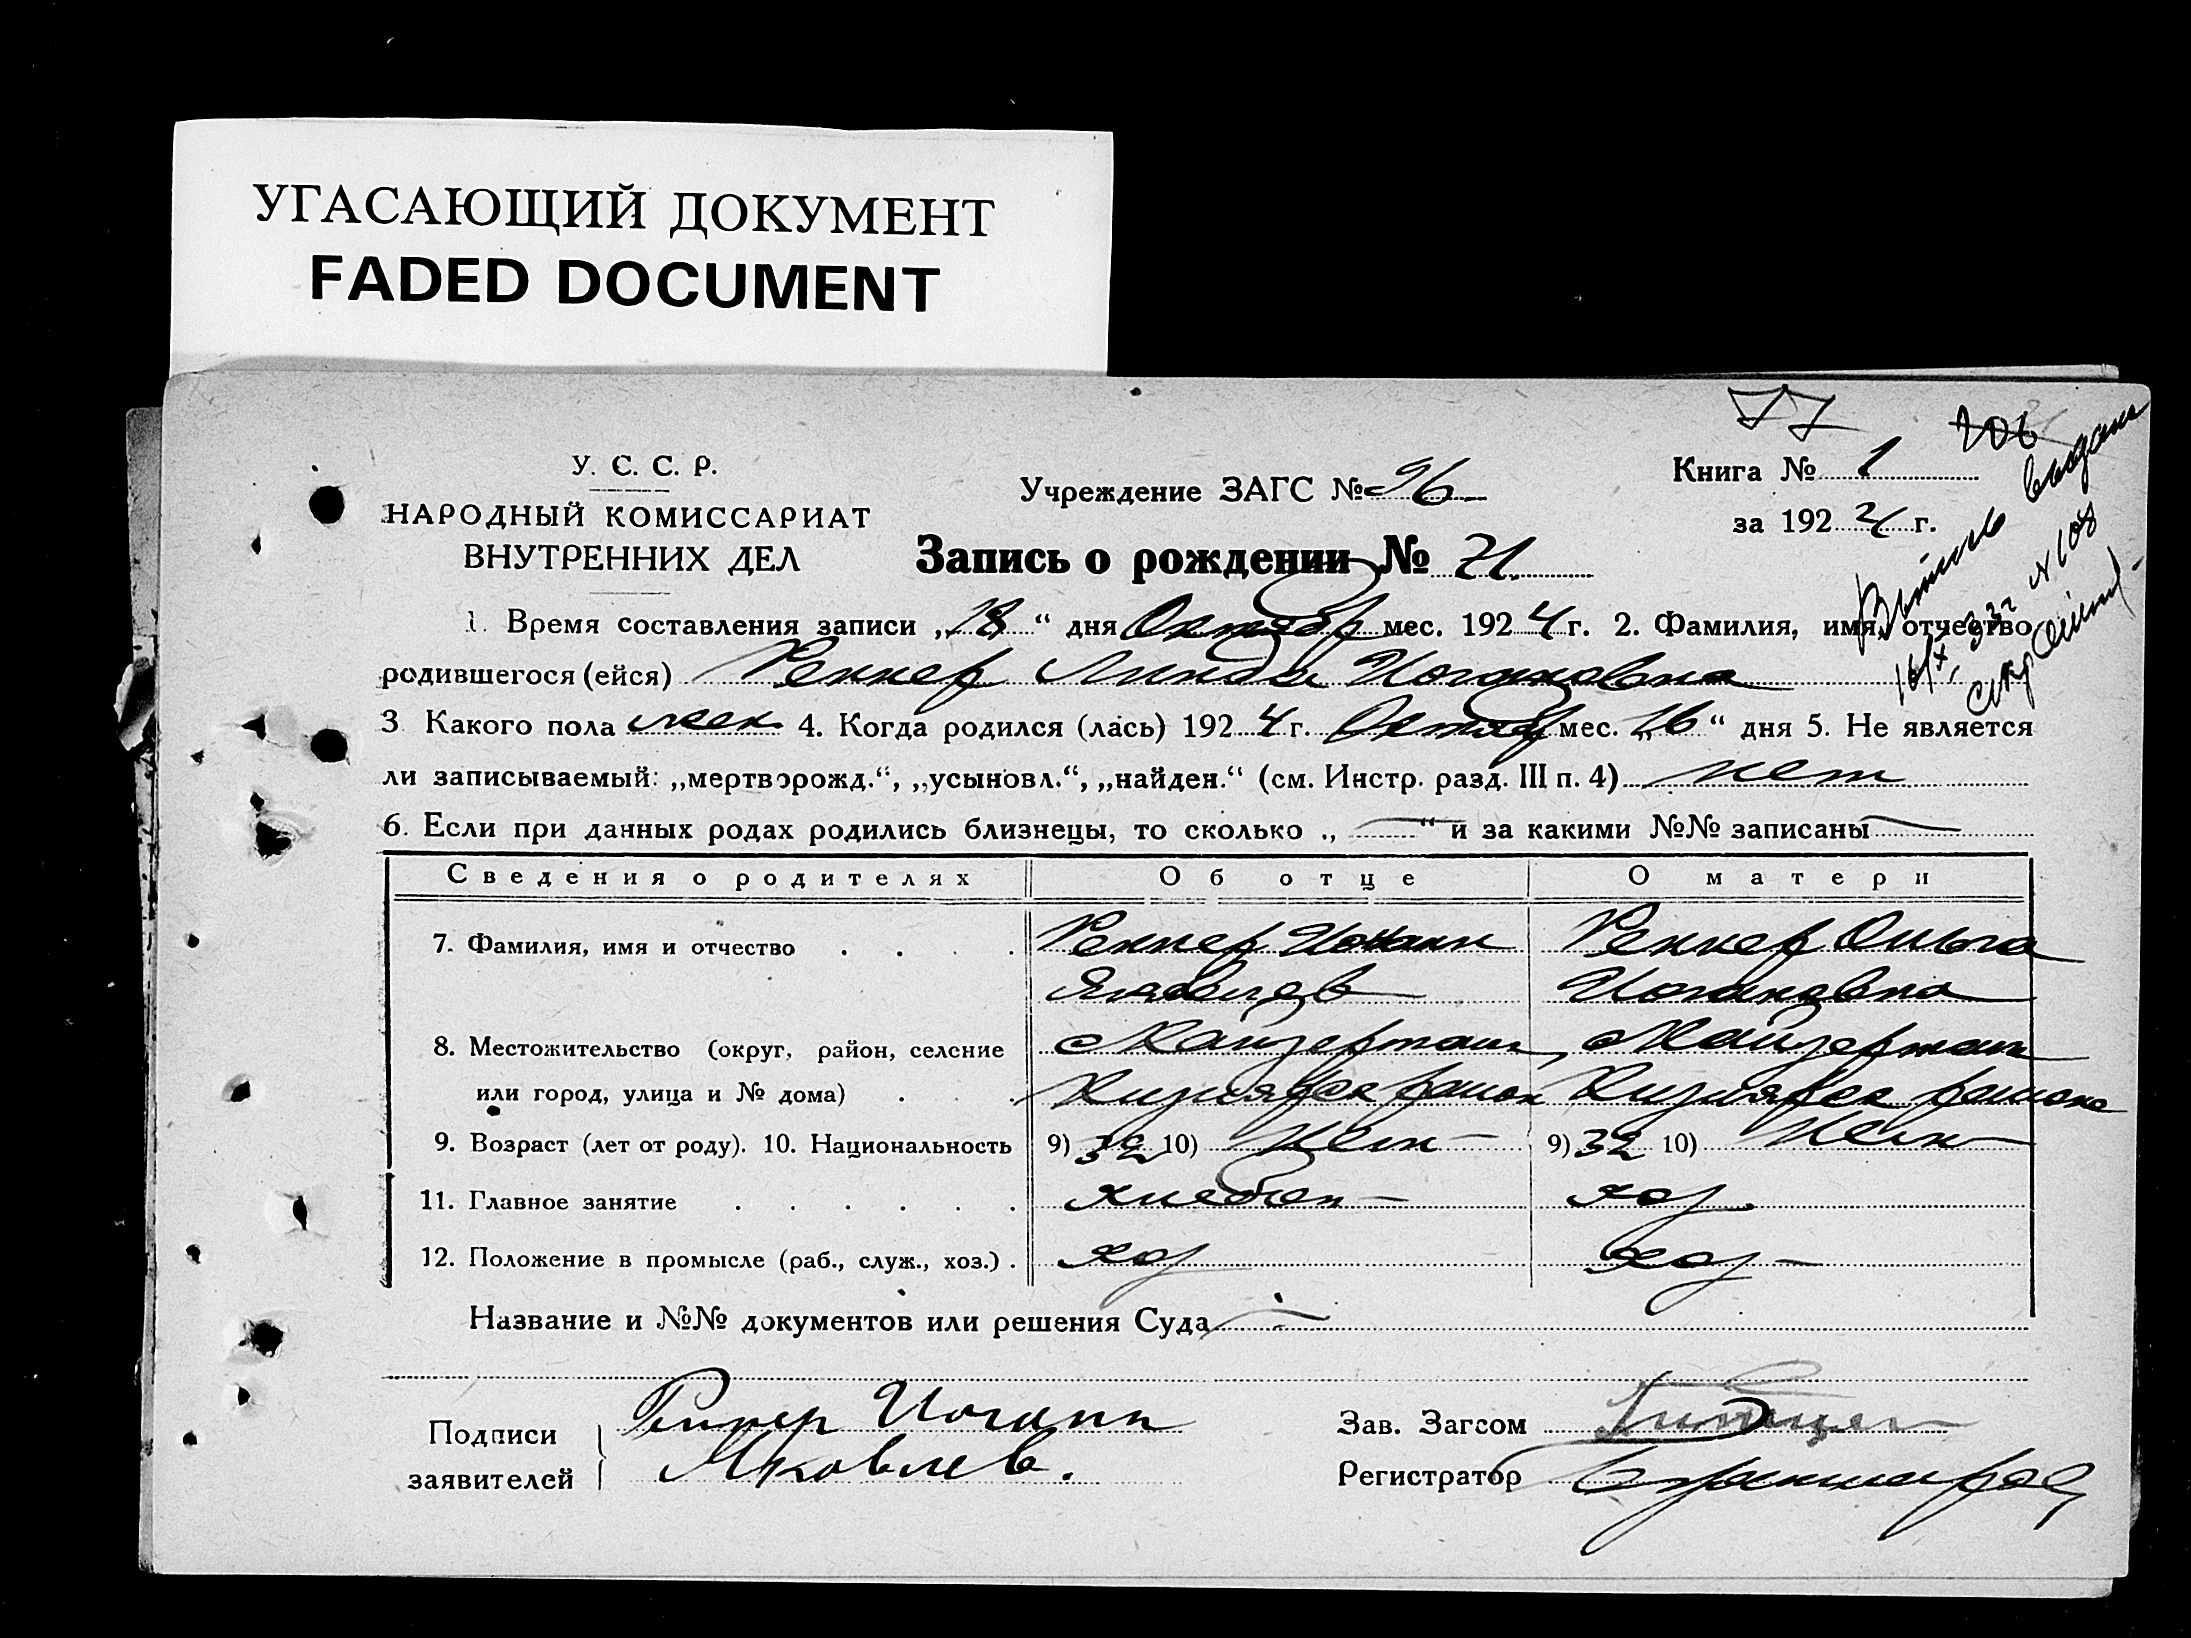 УГАСАЮЩИЙ ДОКУМЕНТ
FADED DOCUMENT
У. С. С. Р.
НАРОДНЫЙ КОМИССАРИАТ
ВНУТРЕННИХ ДЕЛ
Учреждение ЗАГС № 96
Запись о рождении № 21
206
Книга № 1
за 1924 г.
Выпись выдана
16/X-33г N 108
1. Время составления записи „18“ дня Октябр мес. 1924 г. 2. Фамилия, имя, отчество
родившегося (ейся) Реннер Линда Иогановна
3 Какого пола жен 4. Когда родился (лась) 1924 г. Октябр мес. „16“ дня 5. Не является
ли записываемый: „мертворожд.“, „усыновл.“, „найден.“ (см. Инстр. разд. III п. 4) нет
6. Если при данных родах родились близнецы, то сколько „ — “ и за какими №№ записаны —
Сведения о родителях Об отце О матери
7. Фамилия, имя и отчество . . . . Реннер Иоганн Реннер Ольга
Яковлев Иогановна
8. Местожительство (округ, район, селение
или город, улица и № дома) . . .
9. Возраст (лет от роду). 10. Национальность 9) 32 10) Нем 9) 32 10) Нем
11. Главное занятие . . . . . . хлебоп хоз
12. Положение в промысле (раб., служ., хоз.) . хоз хоз
Название и №№ документов или решения Суда —
Подписи
заявителей
Иоганн
Яковлев.
Зав. Загсом
Регистратор